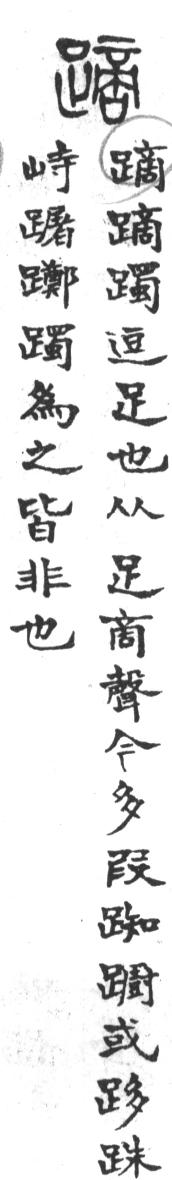 蹢
蹢蹢躅逗足也从足啇聲今多叚踟蹰或跢跦
峙躑躅為之皆非也